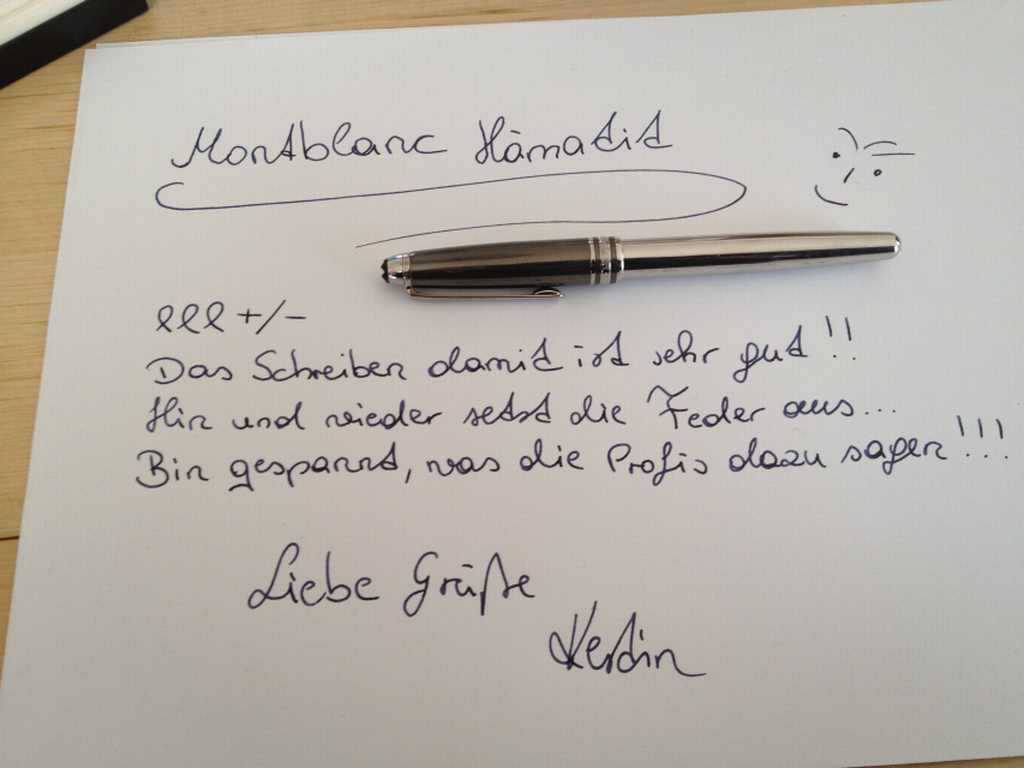 Montblanc Hämatit
lll +/-
Das Schreiben damit ist sehr gut!!
Hin und wieder setzt die Feder aus...
Bin gespannt, was die Profis dazu sagen!!!
Liebe Grüße
Kerstin